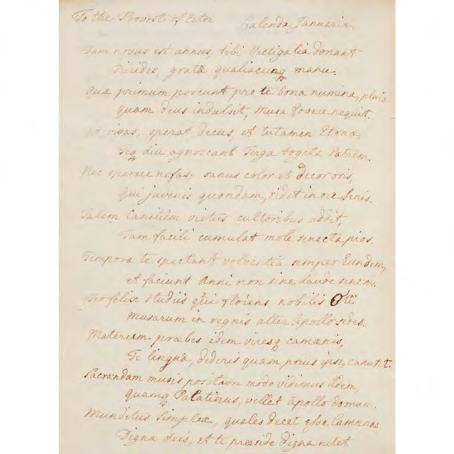 To the Provost of Eton Calendæ Januariæ.
Jam novus est annus, tibi Vectigalia donant
Pierides, grata qualiacunq manu.
Qua primum poscunt pro te bona numina, plura
quam deus indulsit, Musa fovere nequit.
Ut vivas, sperat decus et tutamen Etonæ,
Teq diu agnoscant Terga togata Patrem.
Nec sperare nefas; sanus color et decor oris,
Qui juvenis quondam, ridet in ore senis.
Talem Canitiem virtus cultoribus addit,
Tam facili cumulat mole senecta pios.
Tempora te spectant volventia semper Eundem,
Et faciunt Anni non sine laude senem.
Sic felix studiis qui florens nobilis Oti
Musarum in regnis alter Apollo sedes.
Materiem præbes idem viresq camænis,
Te lingua, dederis quam prius ipse, canit.
Sacrandam musis positam modo vidimus Ædem,
quamq Palatinus, vellet Apollo domum.
Munditiis Simplex, quales decet esse Camænas
Digna deis, et te præside digna nitet